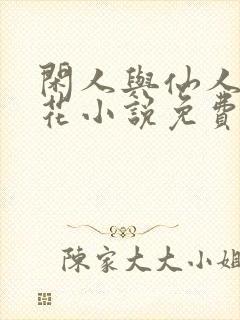 閑人與仙人
花小說免費
陳家大大小姐